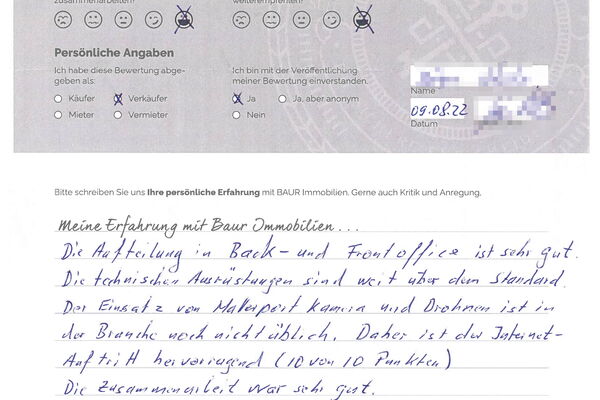 zusammenarbeiten?
weiterempfehlen?
Persönliche Angaben
Ich habe diese Bewertung abge-
geben als:
Käufer Verkäufer
Mieter Vermieter
Ich bin mit der Veröffentlichung
meiner Bewertung einverstanden.
Ja Ja, aber anonym
Nein
Name
09.08.22
Datum
Bitte schreiben Sie uns Ihre persönliche Erfahrung mit BAUR Immobilien. Gerne auch Kritik und Anregung.
Meine Erfahrung mit Baur Immobilien...
Die Aufteilung in Back- und Frontoffice ist sehr gut.
Die technischen Ausrüstungen sind weit über dem Standard.
Der Einsatz von Matterport Kamera und Drohnen ist in
der Branche noch nicht üblich. Daher ist der Internet-
Auftritt hervorragend (10 von 10 Punkten)
Die Zusammenarbeit war sehr gut.